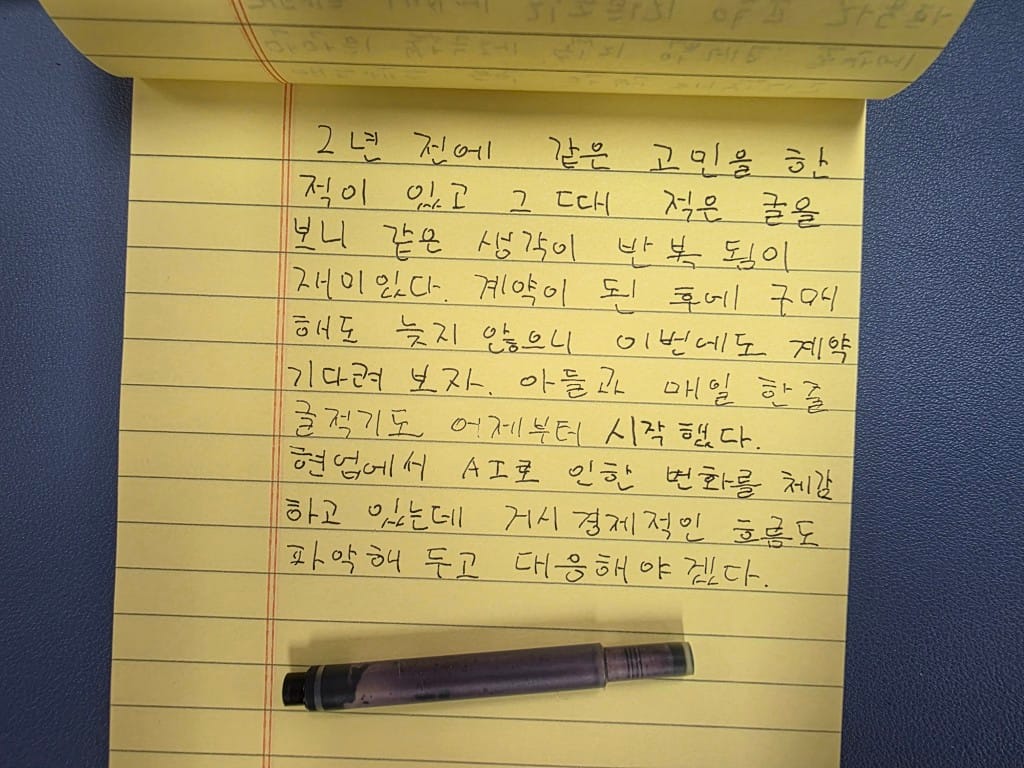 2년 전에 같은 고민을 한
적이 있고 그 때 적은 글을
보니 같은 생각이 반복 됨이
재미있다. 계약이 된 후에 구매
해도 늦지 않으니 이번에도 계약
기다려 보자. 아들과 매일 한줄
글적기도 어제부터 시작했다.
현업에서 AI로 인한 변화를 체감
하고 있는데 거시경제적인 흐름도
파악해 두고 대응해야겠다.